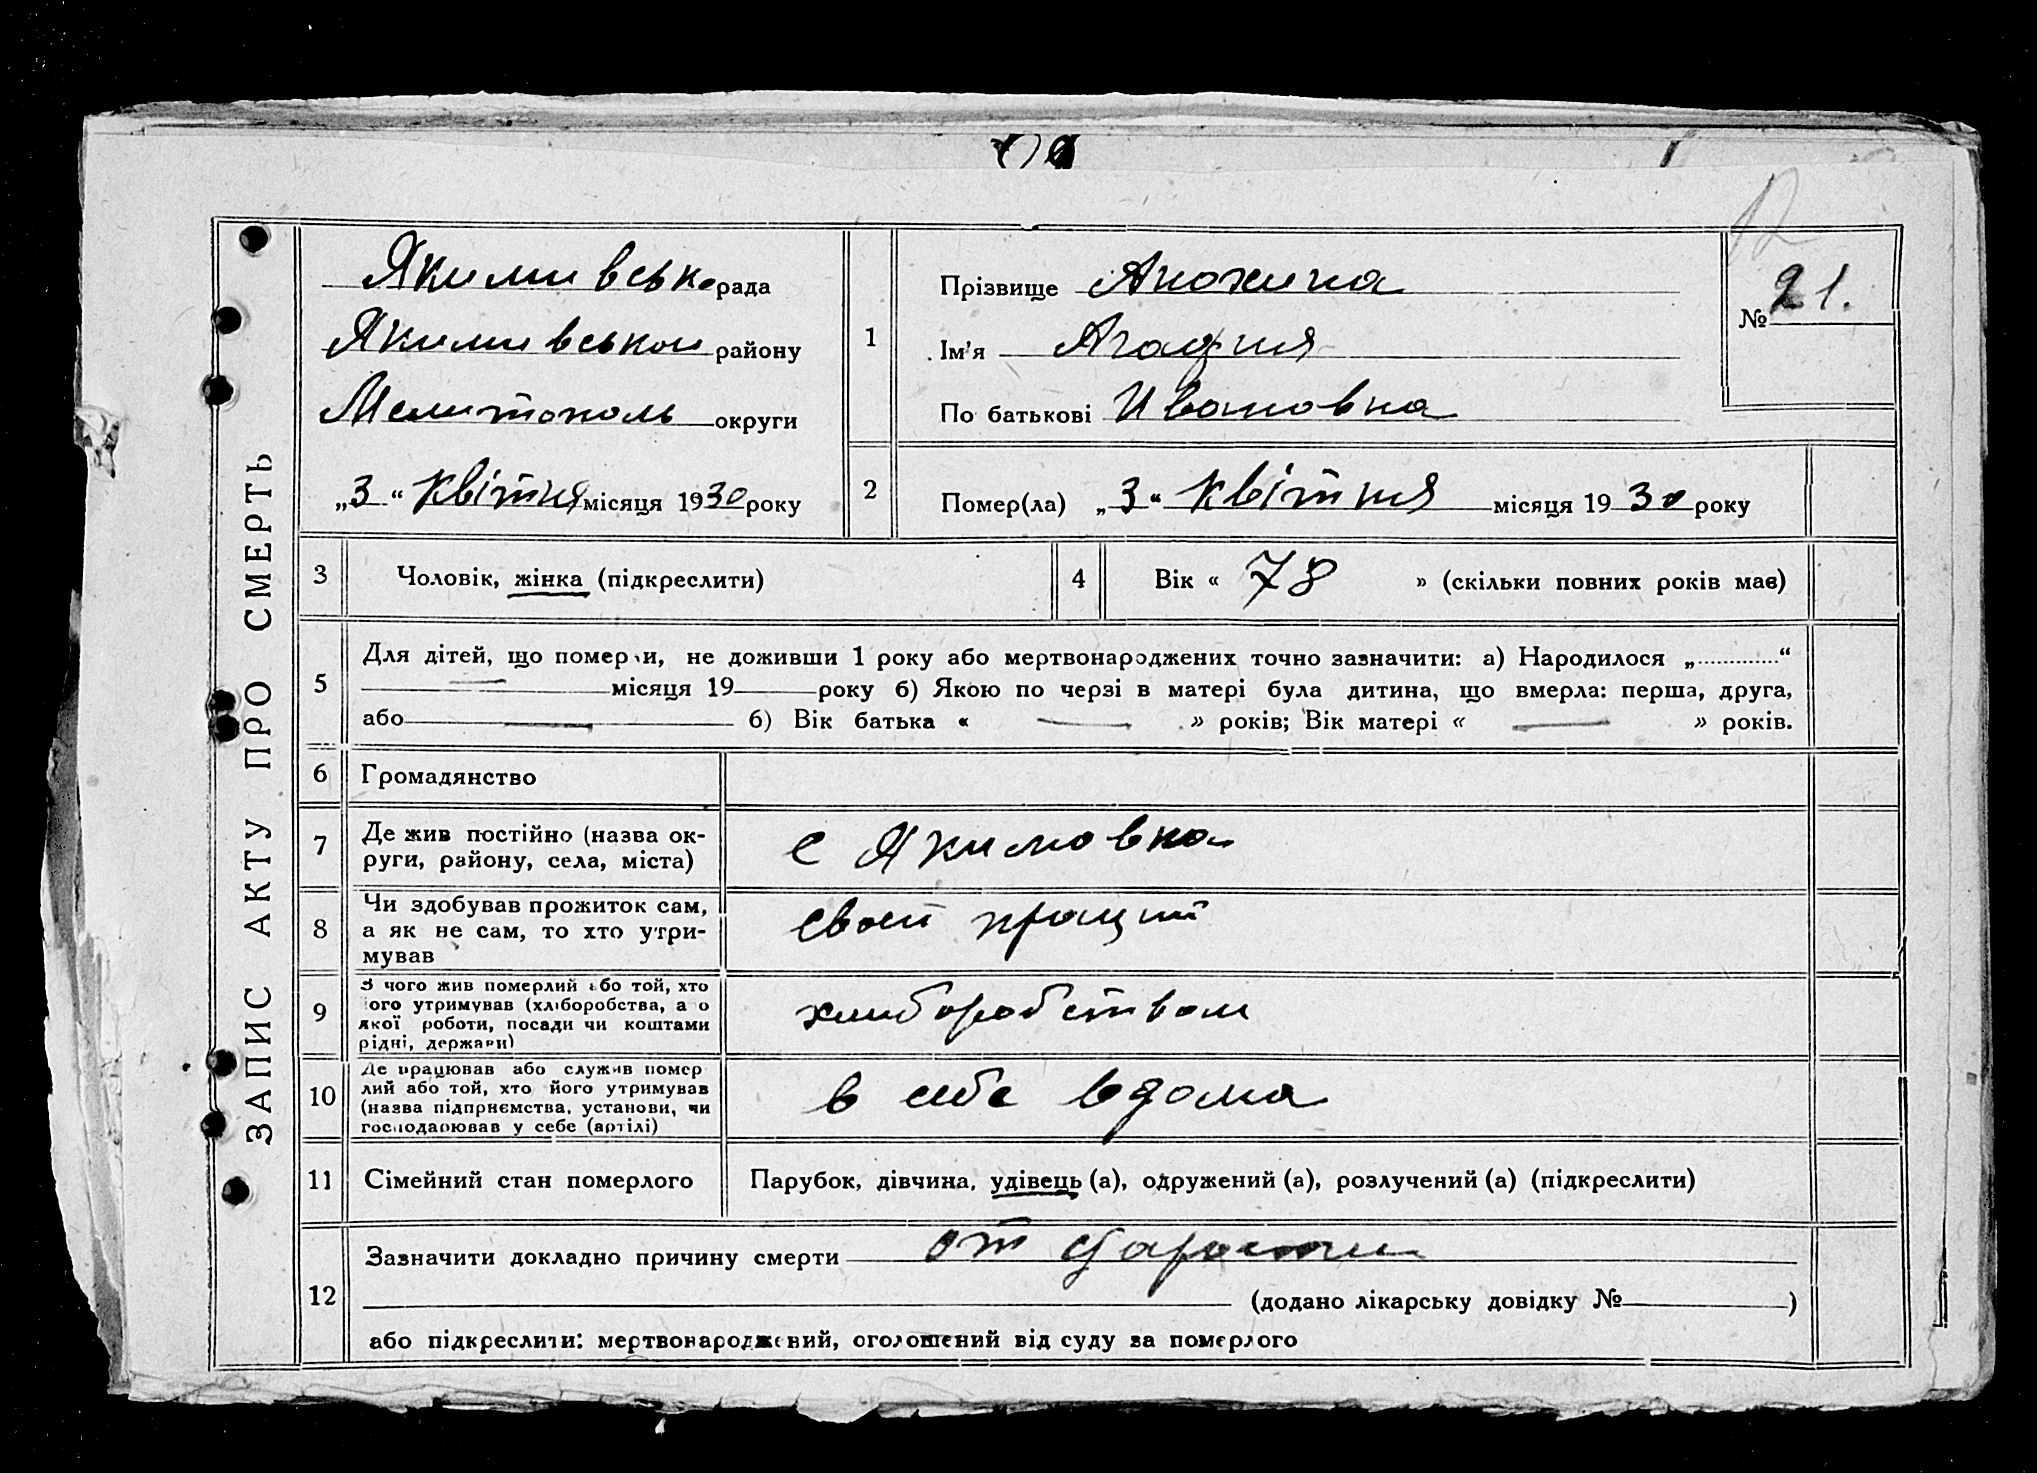 ЗАПИС АКТУ ПРО СМЕРТЬ
Якимивська рада
Якимивськой району
Мелитополь округи
„3“ квітня місяця 1930 року
1
Прізвище Анохина
Ім'я Агафия
По батькові Ивановна
№ 21.
2
Помер(ла) „3“ квітня місяця 1930 року
3 Чоловік, жінка (підкреслити)
4 Вік « 78 » (скільки повних років має)
5
Для дітей, що померли, не доживши 1 року або мертвонароджених точно зазначити: а) Народилося „ “
місяця 19 року б) Якою по черзі в матері була дитина, що вмерла: перша, друга,
або б) Вік батька « » років; Вік матері « » років.
6 Громадянство
7 Де жив постійно (назва ок-
руги, району, села, міста)
с Якимовка
8 Чи здобував прожиток сам,
а як не сам, то хто утри-
мував
своей праций
9 З чого жив померлий або той, хто
його утримував (хліборобства, а о
якої роботи, посади чи коштами
рідні, держави)
хлиборобством
10 Де працював або служив помер
лий або той, хто його утримував
(назва підприємства, установи, чи
господарював у себе (артілі)
в себе вдома
11 Сімейний стан померлого
Парубок, дівчина, удівець (а), одружений (а), розлучений (а) (підкреслити)
12
Зазначити докладно причину смерти от старости
(додано лікарську довідку № )
або підкреслити: мертвонароджений, оголошений від суду за померлого